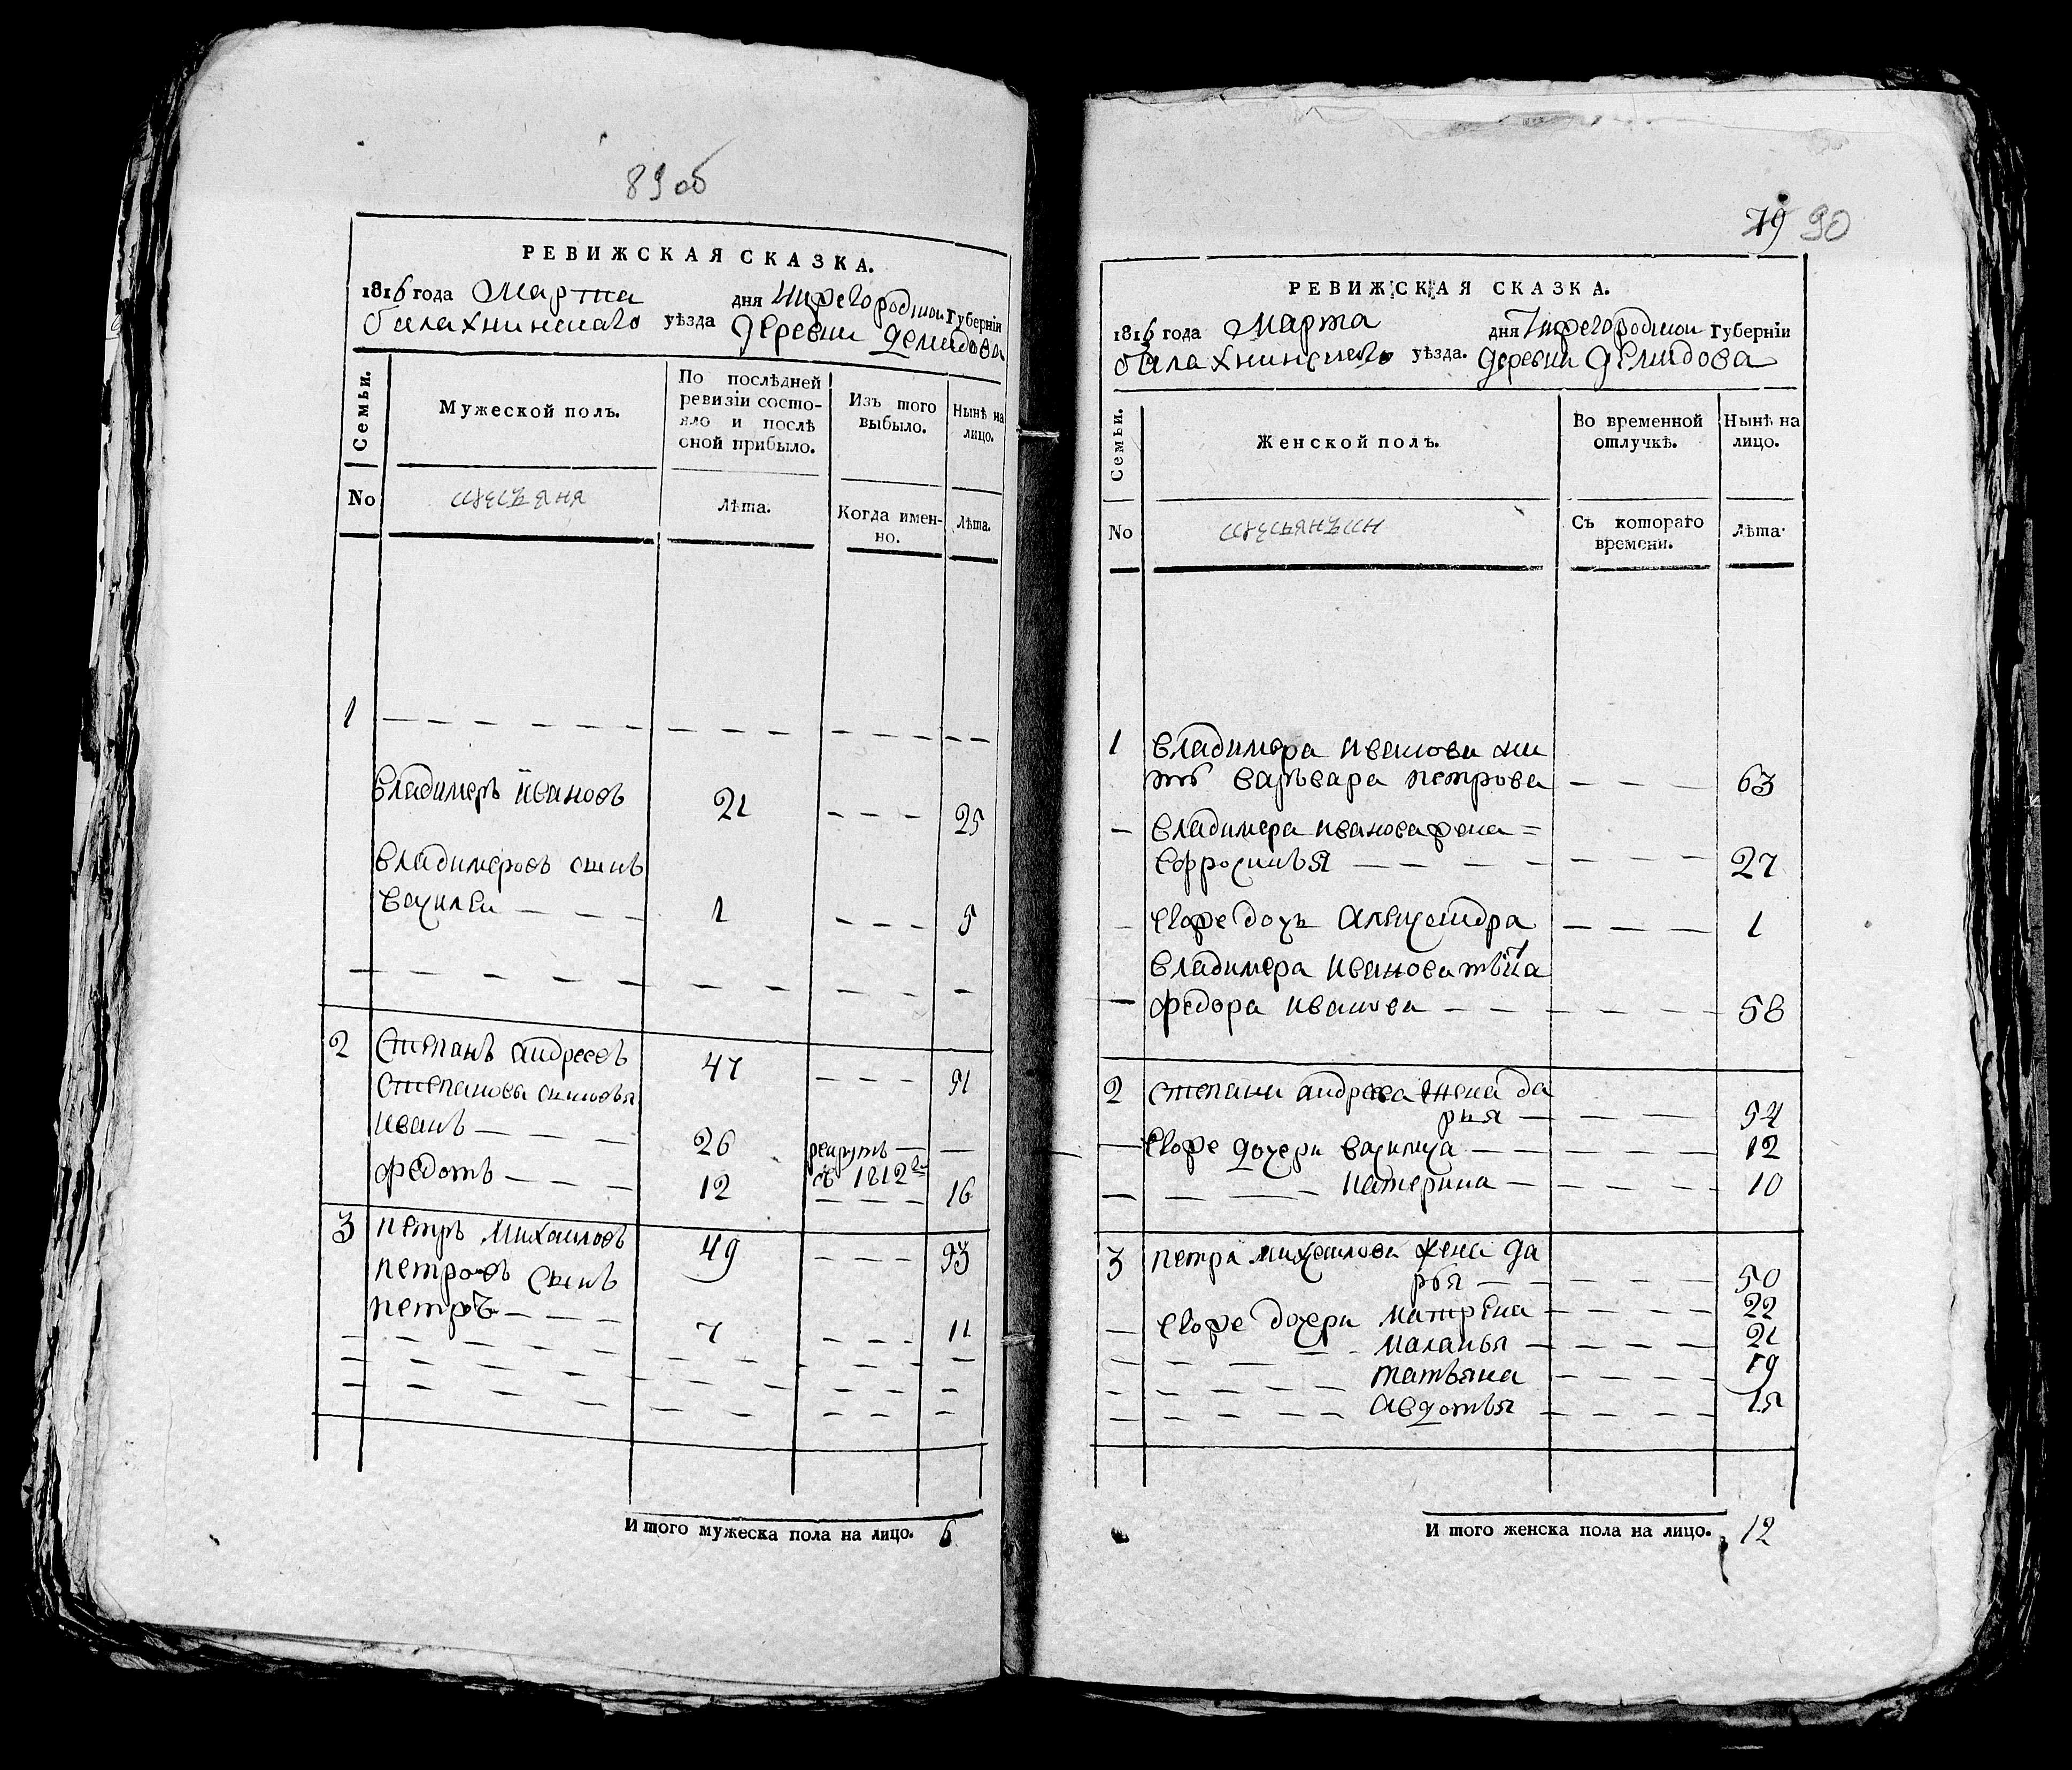 89об
РЕВИЖСКАЯ СКАЗКА.
1816 года Марта дня Нижегородской Губерніи
балахнинскаго уѣзда деревни демидова
Семьи.
Мужеской полъ.
По послѣдней ревизіи состояло и послѣ оной прибыло.
Изъ того выбыло.
Нынѣ на лицо.
No
Лѣта.
Когда именно.
Лѣта.
1 — — — — — — — — — — — —
владимеръ ивановъ 21 — — — 25
владимеровъ сынъ
василеи — — — 1 — — — 5
— — — — — — — — — — — —
2 степанъ андреевъ 47 — — — 51
степановы сыновья
иванъ — — — 26 рекрутъ — —
въ 1812 г
федотъ — — — 12 — — — 16
3 петръ михаиловъ 49 — — — 53
петровъ сынъ
петръ — — — 7 — — — 11
— — — — — — — — — — — —
— — — — — — — — — — — —
— — — — — — — — — — — —
Итого мужеска пола на лицо. 6
79 90
РЕВИЖСКАЯ СКАЗКА.
1816 года Марта дня Нижегородской Губерніи
балахнинскаго уѣзда. деревни демидова
Семьи.
Женской полъ.
Во временной отлучкѣ.
Нынѣ на лицо.
No
Съ котораго времени.
Лѣта.
1 владимера иванова ма
ть варьвара петрова — — — 63
— владимера иванова жена =
ефросинья — — — — — — — 27
— евоже дочь александра — — — 1
владимера иванова
— федора иванова — — — — — — 58
2 степана андреева жена да
рья — — — — 54
— евоже дочери василиса — — — — — 12
— — — — катерина — — — — — 10
3 петра михаилова жена да
рья — — — — — 50
— евоже дочери матрена — — — — 22
— — — — маланья — — — — 21
— — — — татьяна — — — — 19
— — — — авдотья — — — — 15
Итого женска пола на лицо. 12